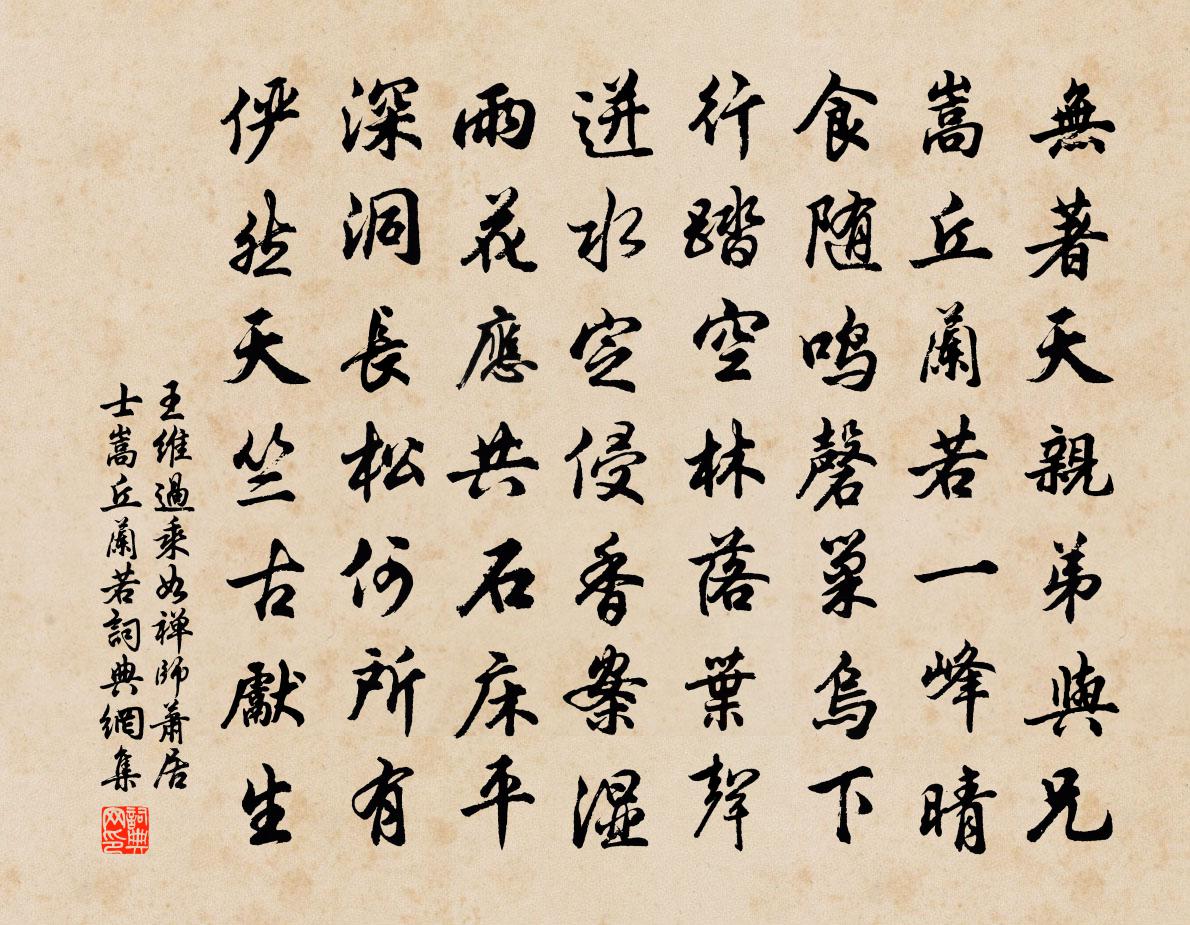 無著天親弟與兄
嵩丘蘭若一峰晴
食随鳴磬巢烏下
行踏空林落葉聲
迸水定侵香案湿
雨花應共石床平
深洞長松何所有
俨然天竺古獻生
王維過乘如禅師萧居
士嵩丘蘭若詞典網集
詞典
网印